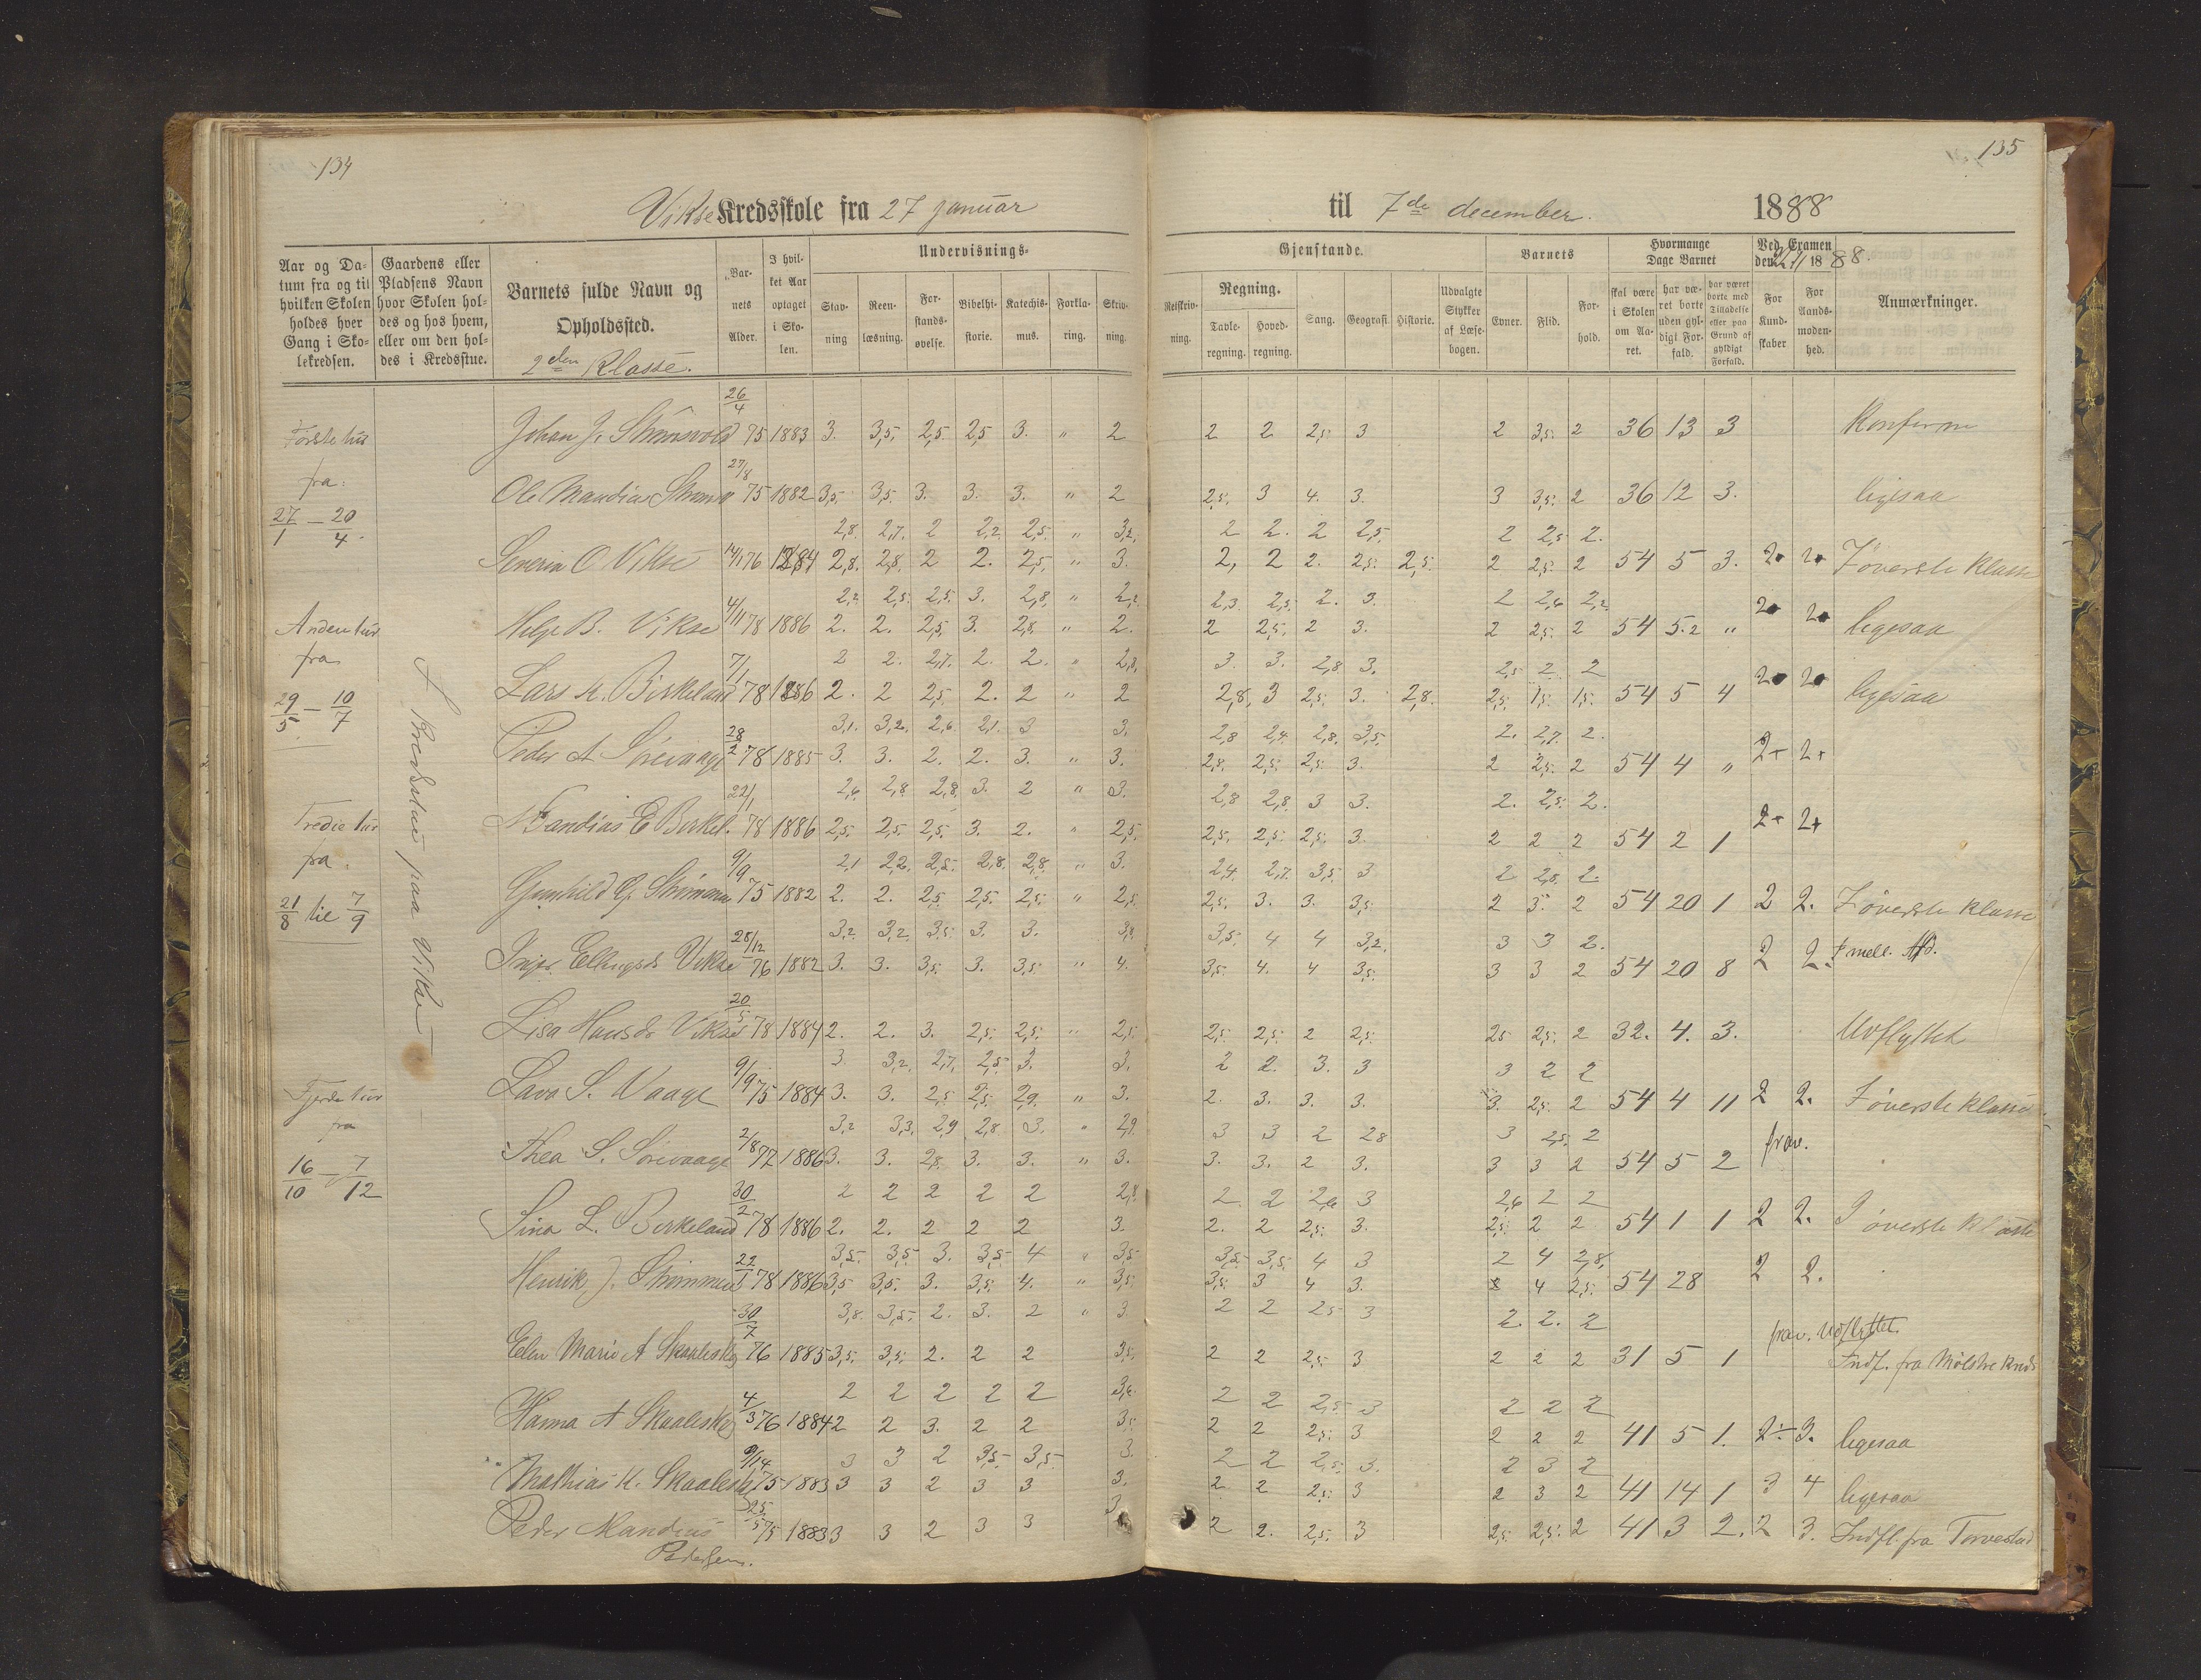 134
135
Vikse Kredsskole fra 27 januar til 7de december. 1888
Aar og Datum fra og til hvilken Skolen holdes hver Gang i Skolekredsen.
Gaardens eller Pladsens Navn hvor Skolen holdes og hos hvem, eller om den holdes i Kredsstue.
Barnets fulde Navn og Opholdssted.
2den Klasse.
Barnets Alder.
I hvilket Aar optaget i Skolen.
Undervisnings-
Stavning
Reenlæsning.
Forstandsøvelse.
Bibelhistorie.
Katechismus.
Forklaring.
Skrivning.
Gjenstande.
Retskrivning.
Regning.
Tavleregning.
Hovedregning.
Sang.
Geografi.
Historie.
Udvalgte Stykker af Læsebogen.
Barnets
Evner.
Flid.
Forhold.
Hvormange Dage Barnet
skal være i Skolen om Aaret.
har været borte uden gyldigt Forfald.
har været borte med Tilladelse eller paa Grund af gyldigt Forfald.
Ved Examen den 22/11 1888.
For Kundskaber
For Aandsmodenhed.
Anmærkninger.
Første tur
fra:
27/1 — 20/4.
Anden tur
fra
29/5 — 10/7
Tredie tur
fra.
21/8 til 7/9
Fjerde tur
fra
16/10 — 7/12
I Kredsstue paa Vikse
26/4
75 1883 3. 3,5. 2,5. 2,5 3. " 2 2 2 2,5. 3 2 3,5. 2 36 13 3 Konferm
27/8
75 1882 3,5. 3,5. 3. 3. 3. " 2 2,5. 3 4. 3. 3 3,5. 2 36 12 3. ligesaa
2,8. 2,7. 2 2,2. 2,5. " 3,2. 2 2. 2 2,5. 2 2,5. 2.
Severin O. Vikse 14/1 76 1884 2,8. 2,8. 2 2. 2,5. " 3. 2, 2 2. 2,5. 2,5. 2 2,5. 2 54 5 3. 2 2 I øverste Klasse
2,2. 2,5. 2,5. 3. 2,8. " 2,2. 2,3. 2,5. 2. 3. 2 2,6 2,2.
Helje B. Vikse 4/11 78 1886 2. 2. 2,5. 3. 2,8. " 2. 2 2,5. 2 3. 2 2,5. 2 54 5.2 " 2 2 ligesaa
2 2. 2,7. 2. 2. " 2,8. 3. 3. 2,8 3. 2,5 2 2
Lars K. Birkeland 7/1 78 1886 2. 2 2,5. 2. 2 " 2 2,8, 3 2,5. 3. 2,8. 2,5. 1,5. 1,5. 54 5 4 2 2 ligesaa
3,1. 3,2. 2,6. 2,1. 3 3. 2,8 2,4. 2,8. 3,5. 2. 2,7. 2.
Peder A Sørevaage 28/2 78 1885 3. 3. 2. 2. 3. " 3. 2,8. 2,5. 2,5. 3. 2 2,5. 2 54 4 " 2+ 2+
2,6. 2,8. 2,8. 3. 2 " 3. 2,8 2,8. 3 3. 2. 2,5. 2.
E Birkel. 22/1 78 1886 2,5. 2,5. 2,5. 3. 2. " 2,5. 2,5. 2,5. 2,5. 3. 2 2 2 54 2 1 2+ 2+
2,1 2,2. 2,5. 2,8. 2,8. " 3. 2,4. 2,7. 3,5. 3 2 2,8. 2.
Gunhild 9/9 75 1882 2. 2. 2,5 2,5. 2,5. " 2,5. 2,5. 3. 3. 3,5. 2 3. 2 54 20 1 2 2. I øverste Klasse
3,2. 3,2. 3,5. 3. 3. 3,8. 3,5. 4 4 3,2. 3 3 2.
Inger Ellingsd. Vikse 28/12 76 1882 3. 3. 3,5. 3. 3,5. " 4. 3,5. 4. 4 3,5. 3 3 2 54 20 8 2 2. I mell. Afd.
Lisa Hansdr Vikse 20/5 78 1884 2. 2. 3. 2,5. 2,5. " 2,5. 2,5. 2,5. 2 2,5. 25 2,5. 2 32. 4. 3. Udflyttet
3 3,2. 2,7. 2,5. 3. 3. 2 2. 3. 3 3 2 2
Lava S. Vaage 9/9 75 1884 3. 3. 2,5. 2,5. 2,9. " 3. 2. 3. 3. 3. 3. 2,5. 2 54 4 11 2 2. I øverste klasse
3,2 3,3. 2,9 2,8. 3. " 2,9. 3 3 2 28 3 2,5. 2
Thea S. Sørevaage 2/8 77 1886 3. 3. 2,8. 3. 3. " 3. 3. 3. 2 3. 3 3 2 54 5 2 frav.
2 2 2 2 2 2,8. 2 2 2,6 3 2,6 2 2
Sina L. Birkeland 30/2 78 1886 2. 2. 2 2 2 3. 2. 2 2,5. 3. 2,5. 2 2 54 1 1 2 2. I øverste Klasse
3,5. 3,5. 3. 3,5. 4 " 3,5. 3,5. 3,5. 4 3 2 4 2,8.
Henrik J. 22/1 78 1886 3,5 3,5. 3. 3,5. 4. " 3,5. 3,5. 3 4 3. 4 2,5. 54 28 2 2.
3,8. 3,5. 2. 3. 2 " 3. 2 2 2,5 3 2. 2. 2
Elen Marie A 30/7 76 1885 3,5. 3,5. 2. 2 2 3,5. 2 2 2,5. 3 2 2 2 31 5 1 frav. Udflyttet.
Indf. fra Mølstre Kreds
2 2 2 2 2 3,6. 2 2 2,5. 3 2 2 2
Hanna A 4/3 76 1884 2 2 3. 2 2 3. 2 2 2,5. 3 2 2 2 41 5 1. 2÷ 3. ligesaa
3 3 2 3,5. 3,5. 3. 2 2 2,5. 3. 2 3 2
Mathias K. 75 1883 3 3 2 3 3 3. 2. 2 2,5. 3 2 3 2 41 14 1 3 4 ligesaa
Peder Mandius 25/5 75 1883 3 3 2 3 3 3. 2 2. 2,5. 3 2,5. 2,5. 2 41 3 2. 2 3. Indfl. fra Torvestad
Pedersen.